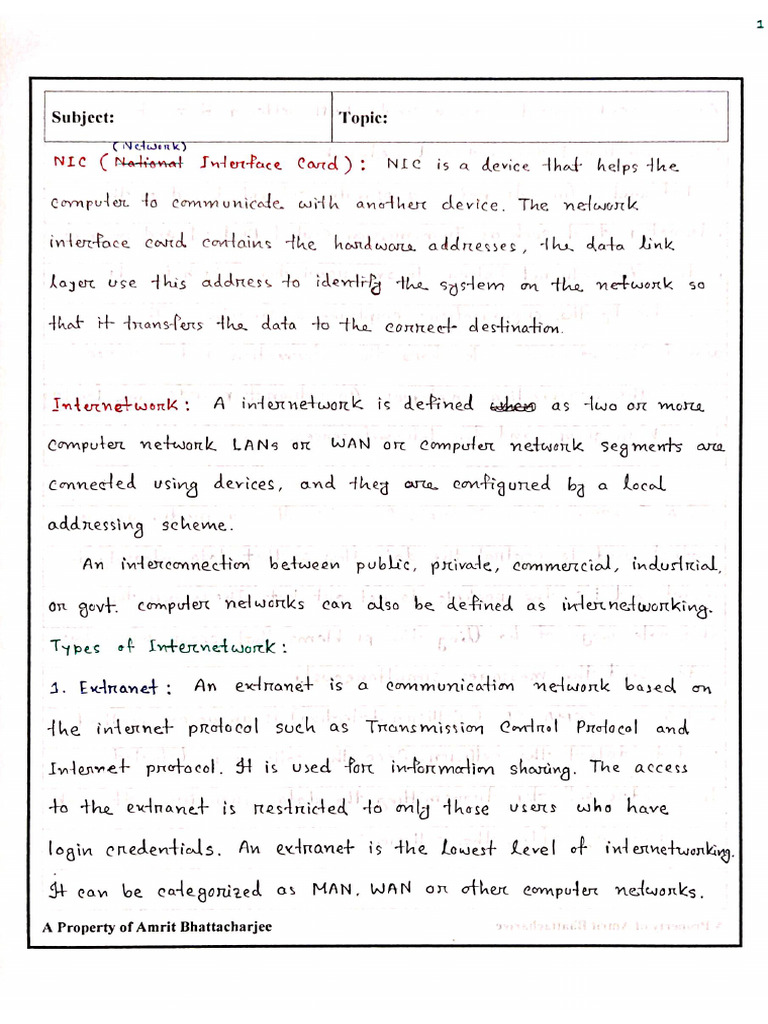 1
Subject: Topic:
(Network)
NIC (National Interface Card): NIC is a device that helps the
computer to communicate with another device. The network
interface card contains the hardware addresses, the data link
layer use this address to identify the system on the network so
that it transfers the data to the correct destination.
Internetwork: A internetwork is defined when as two or more
computer network LANs or WAN or computer network segments are
connected using devices, and they are configured by a local
addressing scheme.
An interconnection between public, private, commercial, industrial,
or govt. computer networks can also be defined as internetworking.
Types of Internetwork:
1. Extranet: An extranet is a communication network based on
the internet protocol such as Transmission Control Protocol and
Internet protocol. It is used for information sharing. The access
to the extranet is restricted to only those users who have
login credentials. An extranet is the lowest level of internetworking.
It can be categorized as MAN, WAN or other computer networks.
A Property of Amrit Bhattacharjee